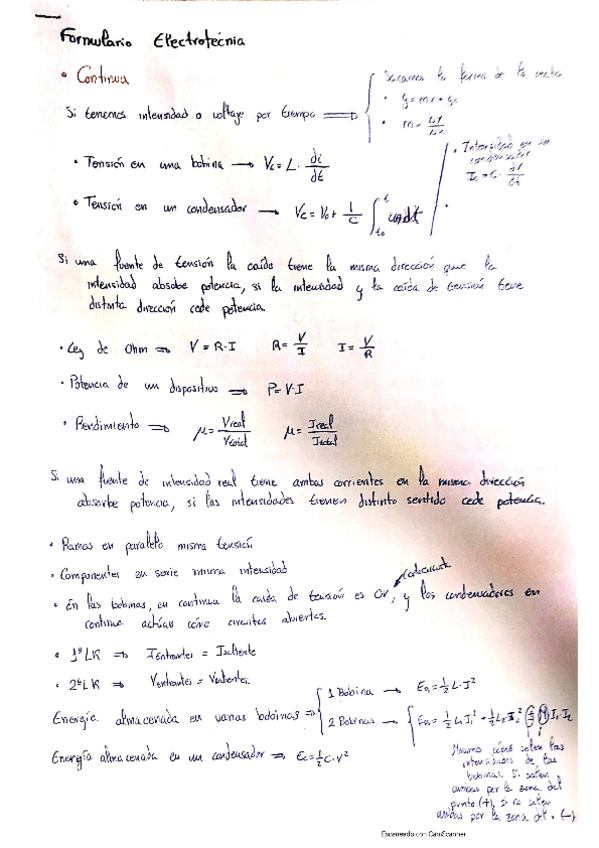 Formulario Electrotecnia
• Continua
Sacamos la forma de la recta
• y = mx + y₀
• m = Δy/Δx
Si tenemos intensidad o voltaje por tiempo ⟹
• Tensión en una bobina → Vc = L · di/dt
• Intensidad en un condensador
Ic = C ·
• Tensión en un condensador → Vc = V₀ + 1/C ∫
Si una fuente de tensión la caída tiene la misma dirección que la
intensidad absobe potencia, si la intensidad y la caída de tensión tiene
distinta dirección cede potencia.
• Ley de Ohm ⟹ V = R·I R = V/I I = V/R
• Potencia de un dispositivo ⟹ P = V·I
• Rendimiento ⟹ μ = Vreal/Vtotal μ = Ireal/Itotal
Si una fuente de intensidad real tiene ambas corrientes en la misma dirección
absorbe potencia, si las intensidades tienen distinto sentido cede potencia.
• Ramas en paralelo misma tensión
• Componentes en serie misma intensidad
• En las bobinas, en continua la caída de tensión es 0V, y los condensadores en
continua actúan como circuitos abiertos.
• 1ª LK ⟹ Ientrantes = Isaliente
• 2ª LK ⟹
Energía almacenada en varias bobinas ⟹
1 Bobina → = ½ L·I²
2 Bobinas → = ½ L₁I₁² + ½ L₂I₂² I₁ I₂
Energía almacenada en un condensador ⟹ Ec = ½ C·V²
Miramos cómo salen las
intensidades de las
bobinas. Si salen
ambas por la zona del
punto (+), si no salen
ambas por la zona del • (-)
Escaneado con CamScanner